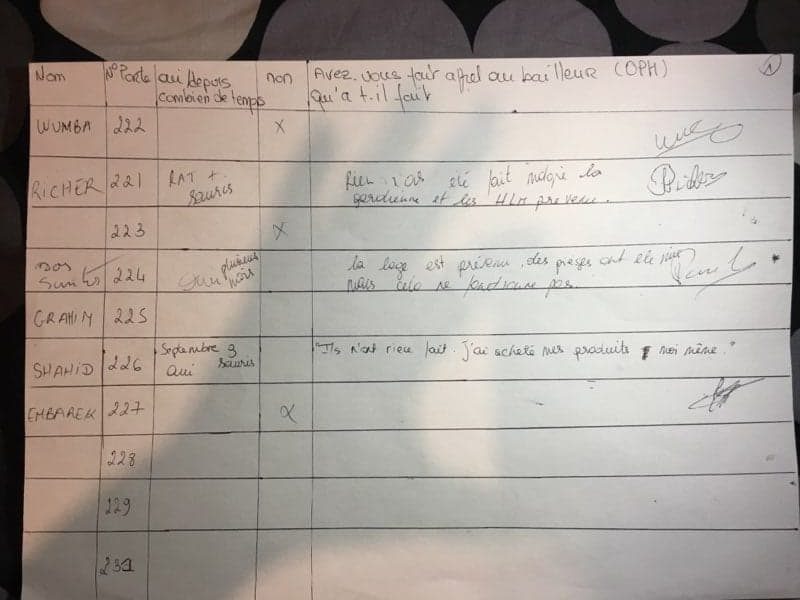 Nom N° Porte oui depuis non Avez-vous fait appel au bailleur (OPH) 1
combien de temps qu'a t-il fait
WUMBA 222 X
RICHER 221 RAT + souris Rien n'as été fait malgré la
gardienne et les HLM prevenu.
223 X
DOS Santos 224 Oui plusieurs mois la loge est prévenu, des pièges ont été mis
mais cela ne fonctionne pas.
GRAHIM 225
SHAHID 226 Septembre 9 souris "Ils n'ont rien fait. J'ai acheté mes produits moi même."
oui
EMBAREK 227 X
228
229
231